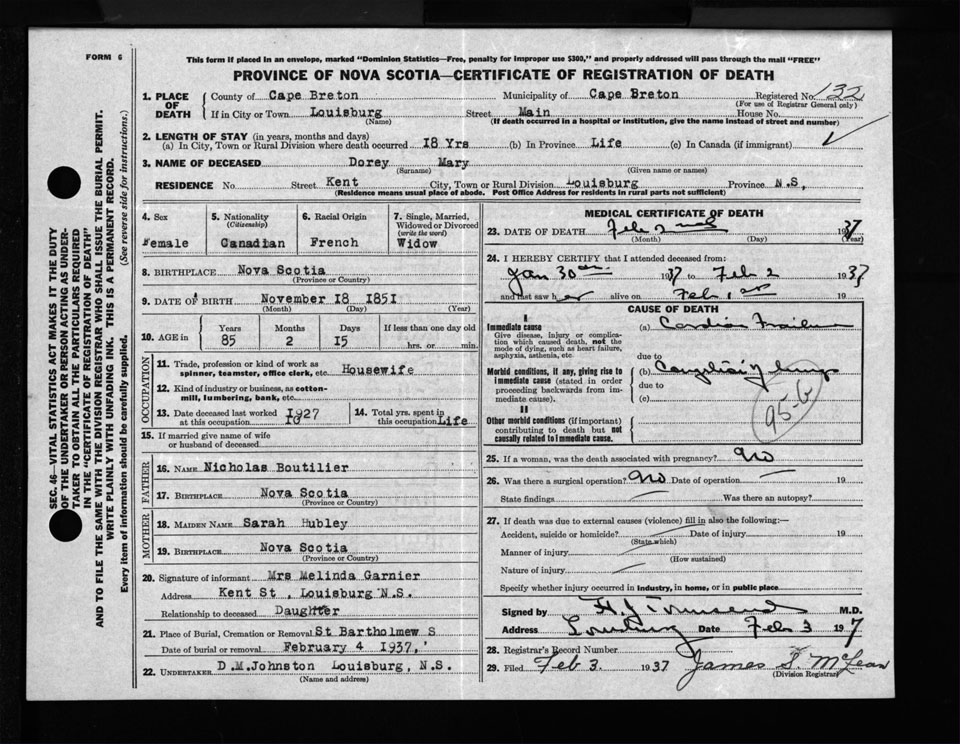 FORM 6
This form if placed in an envelope, marked "Dominion Statistics—Free, penalty for improper use $300," and properly addressed will pass through the mail "FREE"
PROVINCE OF NOVA SCOTIA—CERTIFICATE OF REGISTRATION OF DEATH
SEC. 46—VITAL STATISTICS ACT MAKES IT THE DUTY
OF THE UNDERTAKER OR PERSON ACTING AS UNDER-
TAKER TO OBTAIN ALL THE PARTICULARS REQUIRED
IN THE "CERTIFICATE OF REGISTRATION OF DEATH"
AND TO FILE THE SAME WITH THE DIVISION REGISTRAR WHO SHALL ISSUE THE BURIAL PERMIT.
WRITE PLAINLY WITH UNFADING INK. THIS IS A PERMANENT RECORD.
Every item of information should be carefully supplied. (See reverse side for instructions.)
1. PLACE OF DEATH
County of Cape Breton Municipality of Cape Breton Registered No. 132
(For use of Registrar General only)
If in City or Town Louisburg Street Main House No.
(Name) (If death occurred in a hospital or institution, give the name instead of street and number)
2. LENGTH OF STAY (in years, months and days)
(a) In City, Town or Rural Division where death occurred 18 Yrs (b) In Province Life (c) In Canada (if immigrant)
3. NAME OF DECEASED Dorey Mary
(Surname) (Given name or names)
RESIDENCE No Street Kent City, Town or Rural Division Louisburg Province N.S,
(Residence means usual place of abode. Post Office Address for residents in rural parts not sufficient)
4. Sex
Female
5. Nationality
(Citizenship)
Canadian
6. Racial Origin
French
7. Single, Married,
Widowed or Divorced
(write the word)
Widow
8. BIRTHPLACE Nova Scotia
(Province or Country)
9. DATE OF BIRTH November 18 1851
(Month) (Day) (Year)
10. AGE in
Years Months Days If less than one day old
85 2 15 hrs. or min.
OCCUPATION
11. Trade, profession or kind of work as
spinner, teamster, office clerk, etc. Housewife
12. Kind of industry or business, as cotton-
mill, lumbering, bank, etc.
13. Date deceased last worked
at this occupation 1927
14. Total yrs. spent in
this occupation Life
15. If married give name of wife
or husband of deceased
FATHER
16. NAME Nicholas Boutilier
17. BIRTHPLACE Nova Scotia
(Province or Country)
MOTHER
18. MAIDEN NAME Sarah Hubley
19. BIRTHPLACE Nova Scotia
(Province or Country)
20. Signature of informant Mrs Melinda Garnier
Address Kent St, Louisburg N.S.
Relationship to deceased Daughter
21. Place of Burial, Cremation or Removal St Bartholmew S
Date of burial or removal February 4 1937,
22. UNDERTAKER D.M.Johnston Louisburg, N.S.
(Name and address)
MEDICAL CERTIFICATE OF DEATH
23. DATE OF DEATH Feb 2nd 1937
(Month) (Day) (Year)
24. I HEREBY CERTIFY that I attended deceased from:
Jan 30 1937 to Feb 2 1937
and last saw her alive on Feb 1st 19
CAUSE OF DEATH
I
Immediate cause
Give disease, injury or complica-
tion which caused death, not the
mode of dying, such as heart failure,
asphyxia, asthenia, etc.
(a) Cardiac Failure
due to
Morbid conditions, if any, giving rise to
immediate cause (stated in order
proceeding backwards from im-
mediate cause).
(b) Congestion of lungs
due to
(c)
95-b
II
Other morbid conditions (if important)
contributing to death but not
causally related to immediate cause.
25. If a woman, was the death associated with pregnancy? No
26. Was there a surgical operation? No Date of operation 19
State findings Was there an autopsy?
27. If death was due to external causes (violence) fill in also the following:—
Accident, suicide or homicide? Date of injury 19
(State which)
Manner of injury
(How sustained)
Nature of injury
Specify whether injury occurred in industry, in home, or in public place
Signed by H.J Townsend M.D.
Address Louisburg Date Feb 3 1937
28. Registrar's Record Number
29. Filed Feb 3. 1937 James S. McLean
(Division Registrar)